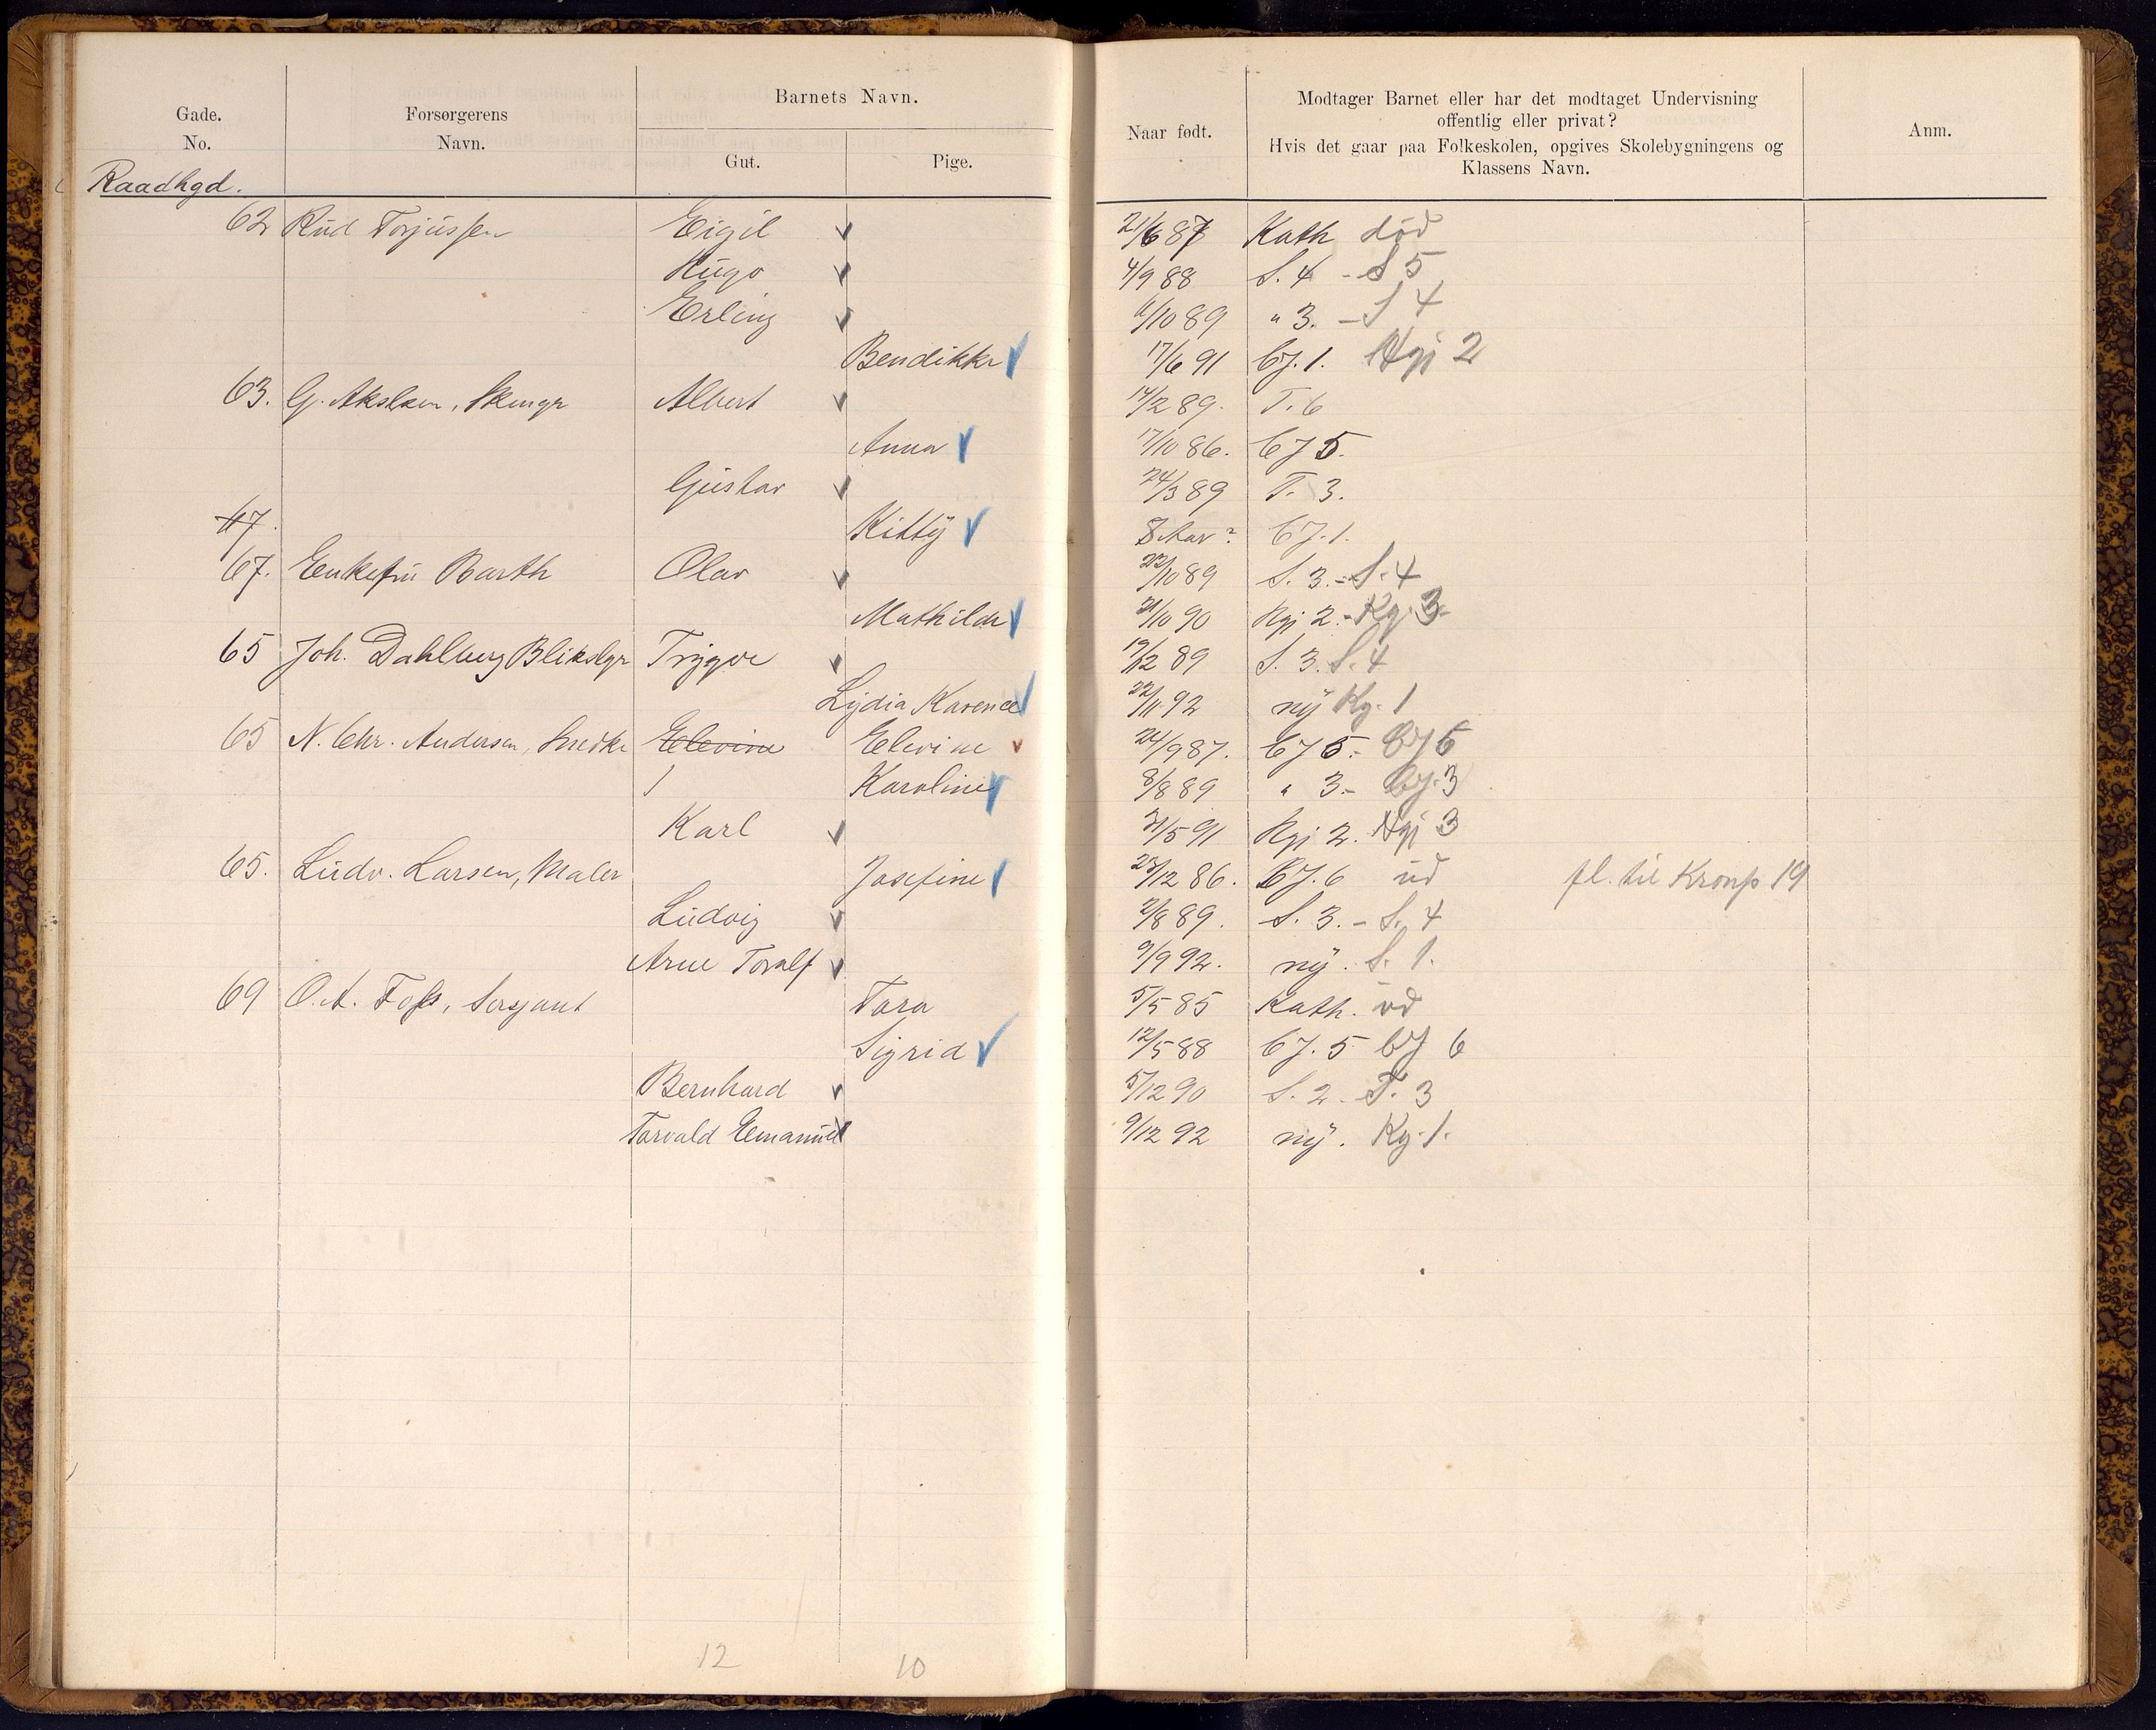 Gade.
No.
Forsørgerens
Navn.
Barnets Navn.
Gut.
Pige.
Naar født.
Modtager Barnet eller har det modtaget Undervisning
offentlig eller privat?
Hvis det gaar paa Folkeskolen, opgives Skolebygningens og
Klassens Navn.
Anm.
Raadhgd.
62 Rud Torjussen Eigil 21/6 87 Kath død
Hugo 4/9 88 S. 4 - S 5
Erling 6/10 89 " 3. - S 4
Bendikke 17/6 91 Cj. 1. Kgj 2
63. G. Akslsen, Albert 14/2 89. T. 6
Anna 17/10 86. Cj 5.
Gustav 24/3 89 T. 3.
47. Kitty 8 Aar? Cj. 1.
67. Enkefru Barth Olav 22/10 89 S. 3. - S. 4
Mathilde 21/10 90 Kgj 2. - Kg. 3.
65 Joh. Dahlberg Blikslgr Trygve 19/12 89 S. 3. S. 4
Lydia Karence 22/11 92 ny Kg. 1
65 N. Chr. Andersen, Snedke Elevine Elevine 24/9 87. Cj 5. Cj 6
Karoline 8/8 89 " 3. - Cj. 3
Karl 31/5 91 Kgj 2. Kgj 3
65. Ludv. Larsen, Maler Josefine 23/12 86. Cj. 6 ud fl. til Kronp 19
Ludvig 2/8 89. S. 3. - S. 4
Arne Toralf 9/9 92. ny. S. 1.
69 O. A. Foss, Sersjant Tora 5/5 85 Kath. ud
Sigrid 12/5 88 Cj. 5 Cj 6
Bernhard 5/12 90 S. 2. T. 3
Torvald Emanuel 9/12 92 ny. Kg. 1.
12 10